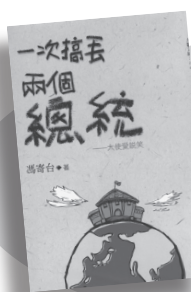 一次搞丟
兩個
總統
馮寄台◆著